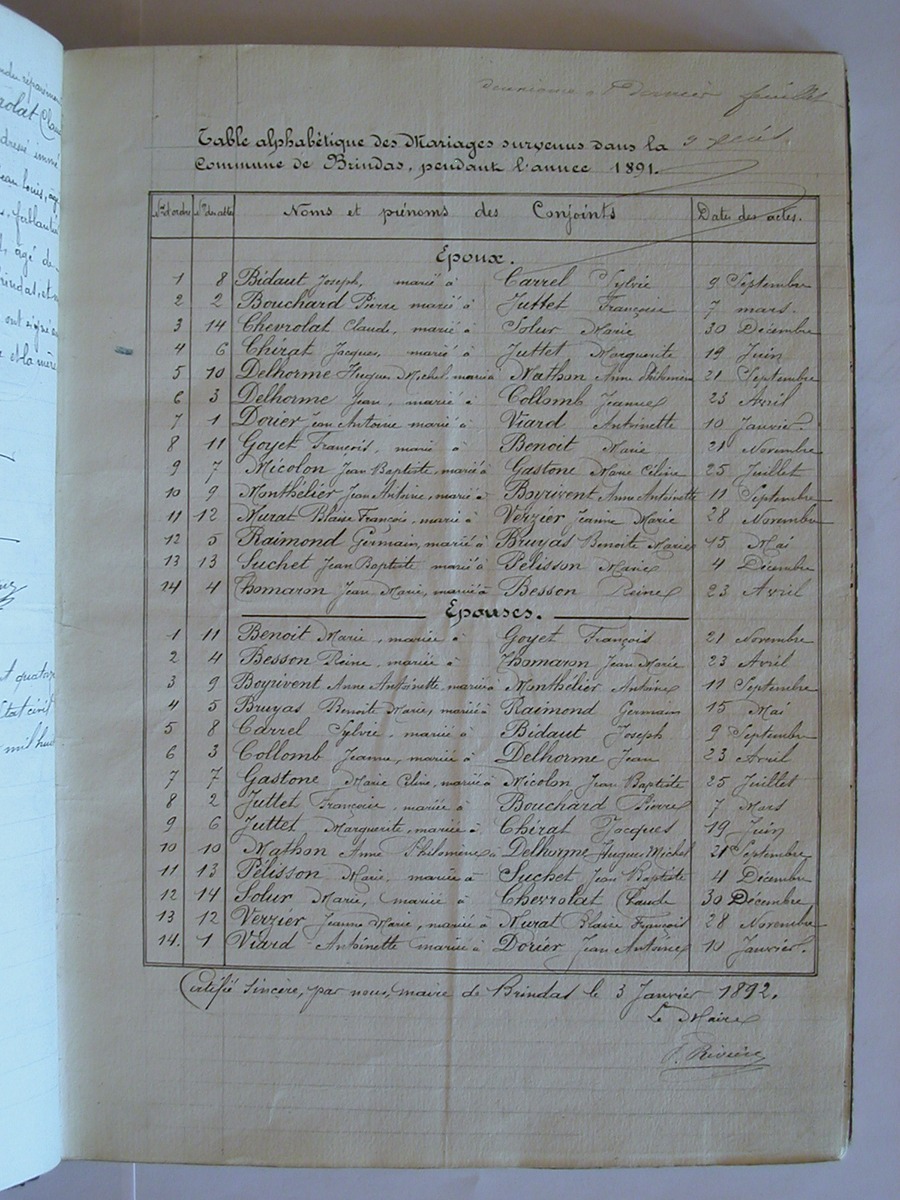 feuillet
Table alphabétique des Mariages survenus dans la
Commune de Brindas, pendant l'année 1891.
Nos d'ordre Nos des actes Noms et prénoms des Conjoints Dates des actes.
Epoux.
1 8 Bidaut Joseph, marié à Carrel Sylvie 9 Septembre
2 2 Bouchard Pierre marié à Juttet Françoise 7 mars.
3 14 Chevrolat Claude, marié à Solur Marie 30 Décembre
4 6 Chirat Jacques, marié à Juttet Marguerite 19 Juin
5 10 Delhorme Hugues Michel marié à Mathon Anne Philomène 21 Septembre
6 3 Delhorme Jean, marié à Collomb Jeanne 23 Avril
7 1 Dorier Jean Antoine marié à Viard Antoinette 10 Janvier.
8 11 Goyet François, marié à Benoit Marie 21 Novembre
9 7 Micolon Jean Baptiste, marié à Gastone Marie Céline 25 Juillet
10 9 Monthélier Jean Antoine, marié à Boyrivent Anne Antoinette 11 Septembre
11 12 Murat Blaise François, marié à Verzier Jeanne Marie 28 Novembre
12 5 Raimond Germain, marié à Bruyas Benoite Marie 15 Mai
13 13 Suchet Jean Baptiste marié à Pélisson Marie 4 Décembre
14 4 Thomaron Jean Marie, marié à Besson Reine 23 Avril
Epouses.
1 11 Benoit Marie, mariée à Goyet François 21 Novembre
2 4 Besson Reine, mariée à Thomaron Jean Marie 23 Avril
3 9 Boyrivent Anne Antoinette, mariée à Monthélier Antoine 11 Septembre
4 5 Bruyas Benoite Marie, mariée à Raimond Germain 15 Mai
5 8 Carrel Sylvie, mariée à Bidaut Joseph 9 Septembre
6 3 Collomb Jeanne, mariée à Delhorme Jean 23 Avril
7 7 Gastone Marie Céline, mariée à Micolon Jean Baptiste 25 Juillet
8 2 Juttet Françoise, mariée à Bouchard Pierre 7 Mars
9 6 Juttet Marguerite, mariée à Chirat Jacques 19 Juin
10 10 Mathon Anne Philomène à Delhorme Hugues Michel 21 Septembre
11 13 Pélisson Marie, mariée à Suchet Jean Baptiste 4 Décembre
12 14 Solur Marie, mariée à Chevrolat Claude 30 Décembre
13 12 Verzier Jeanne Marie, mariée à Murat Blaise François 28 Novembre
14. 1 Viard Antoinette mariée à Dorier Jean Antoine 10 Janvier.
Certifié Sincère, par nous, maire de Brindas le 3 Janvier 1892.
Le Maire
Rivière